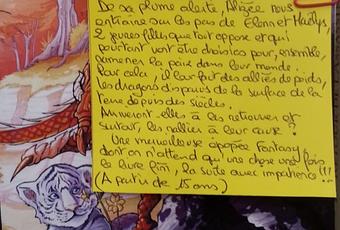 De sa plume alerte, Alizée nous
entraîne sur les pas de Elann et Maélys,
2 jeunes filles que tout oppose et qui
pourtant vont être choisies pour, ensemble,
ramener la paix dans leur monde.
Pour cela, il leur faut des alliés de poids,
les dragons disparus de la surface de la
Terre depuis des siècles.
Arriveront-elles à les retrouver et
surtout, les rallier à leur cause ?
Une merveilleuse épopée Fantasy,
dont on n'attend qu'une chose une fois
le livre fini, la suite avec impatience !!!
(A partir de 15 ans)